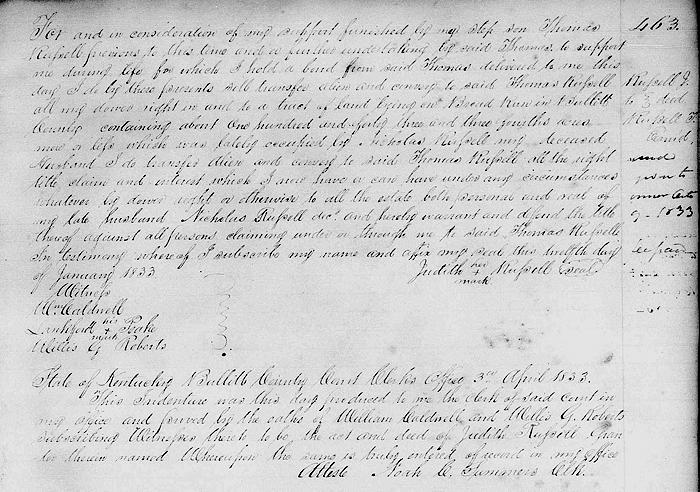 For and in consideration of my support furnished by my step son Thomas
Russell previous to this time and a further undertaking by said Thomas, to support
me during life for which I hold a bond from said Thomas delivered to me this
day I do by these presents sell transfer alien and convey to said Thomas Russell
all my dower right in and to a tract of Land lying on Broad Run in Bullitt
County containing about One hundred and forty three and three fourths acres
more or less which was lately occupied by Nicholas Russell my deceased
Husband I do transfer Alien and convey to said Thomas Russell all the right
title claim and interest which I now have or can have under any circumstances
whatever by dower right or otherwise to all the estate both personal and real of
my late husband Nicholas Russell decd. and hereby warrant and defend the title
thereof against all persons claiming under or through me to said Thomas Russell
In testimony whereof I subscribe my name and affix my seal this twelfth day
of January 1833 Judith her + mark Russell Seal
Witness
Wm Caldwell
Lankford his + mark
Willis G Roberts
State of Kentucky Bullitt County Court Clerks Office 3rd April 1833.
This Indenture was this day produced to me the clerk of said Court in
my office and proved by the oaths of William Caldwell and Willis G. Roberts
subscribing Witnesses thereto to be the act and deed of Judith Russell Gran
tor therein named Whereupon the same is truly entered of record in my office
Atteste Noah C. Summers Clk.
463.
Russell J.
to deed
Russell T.
1833